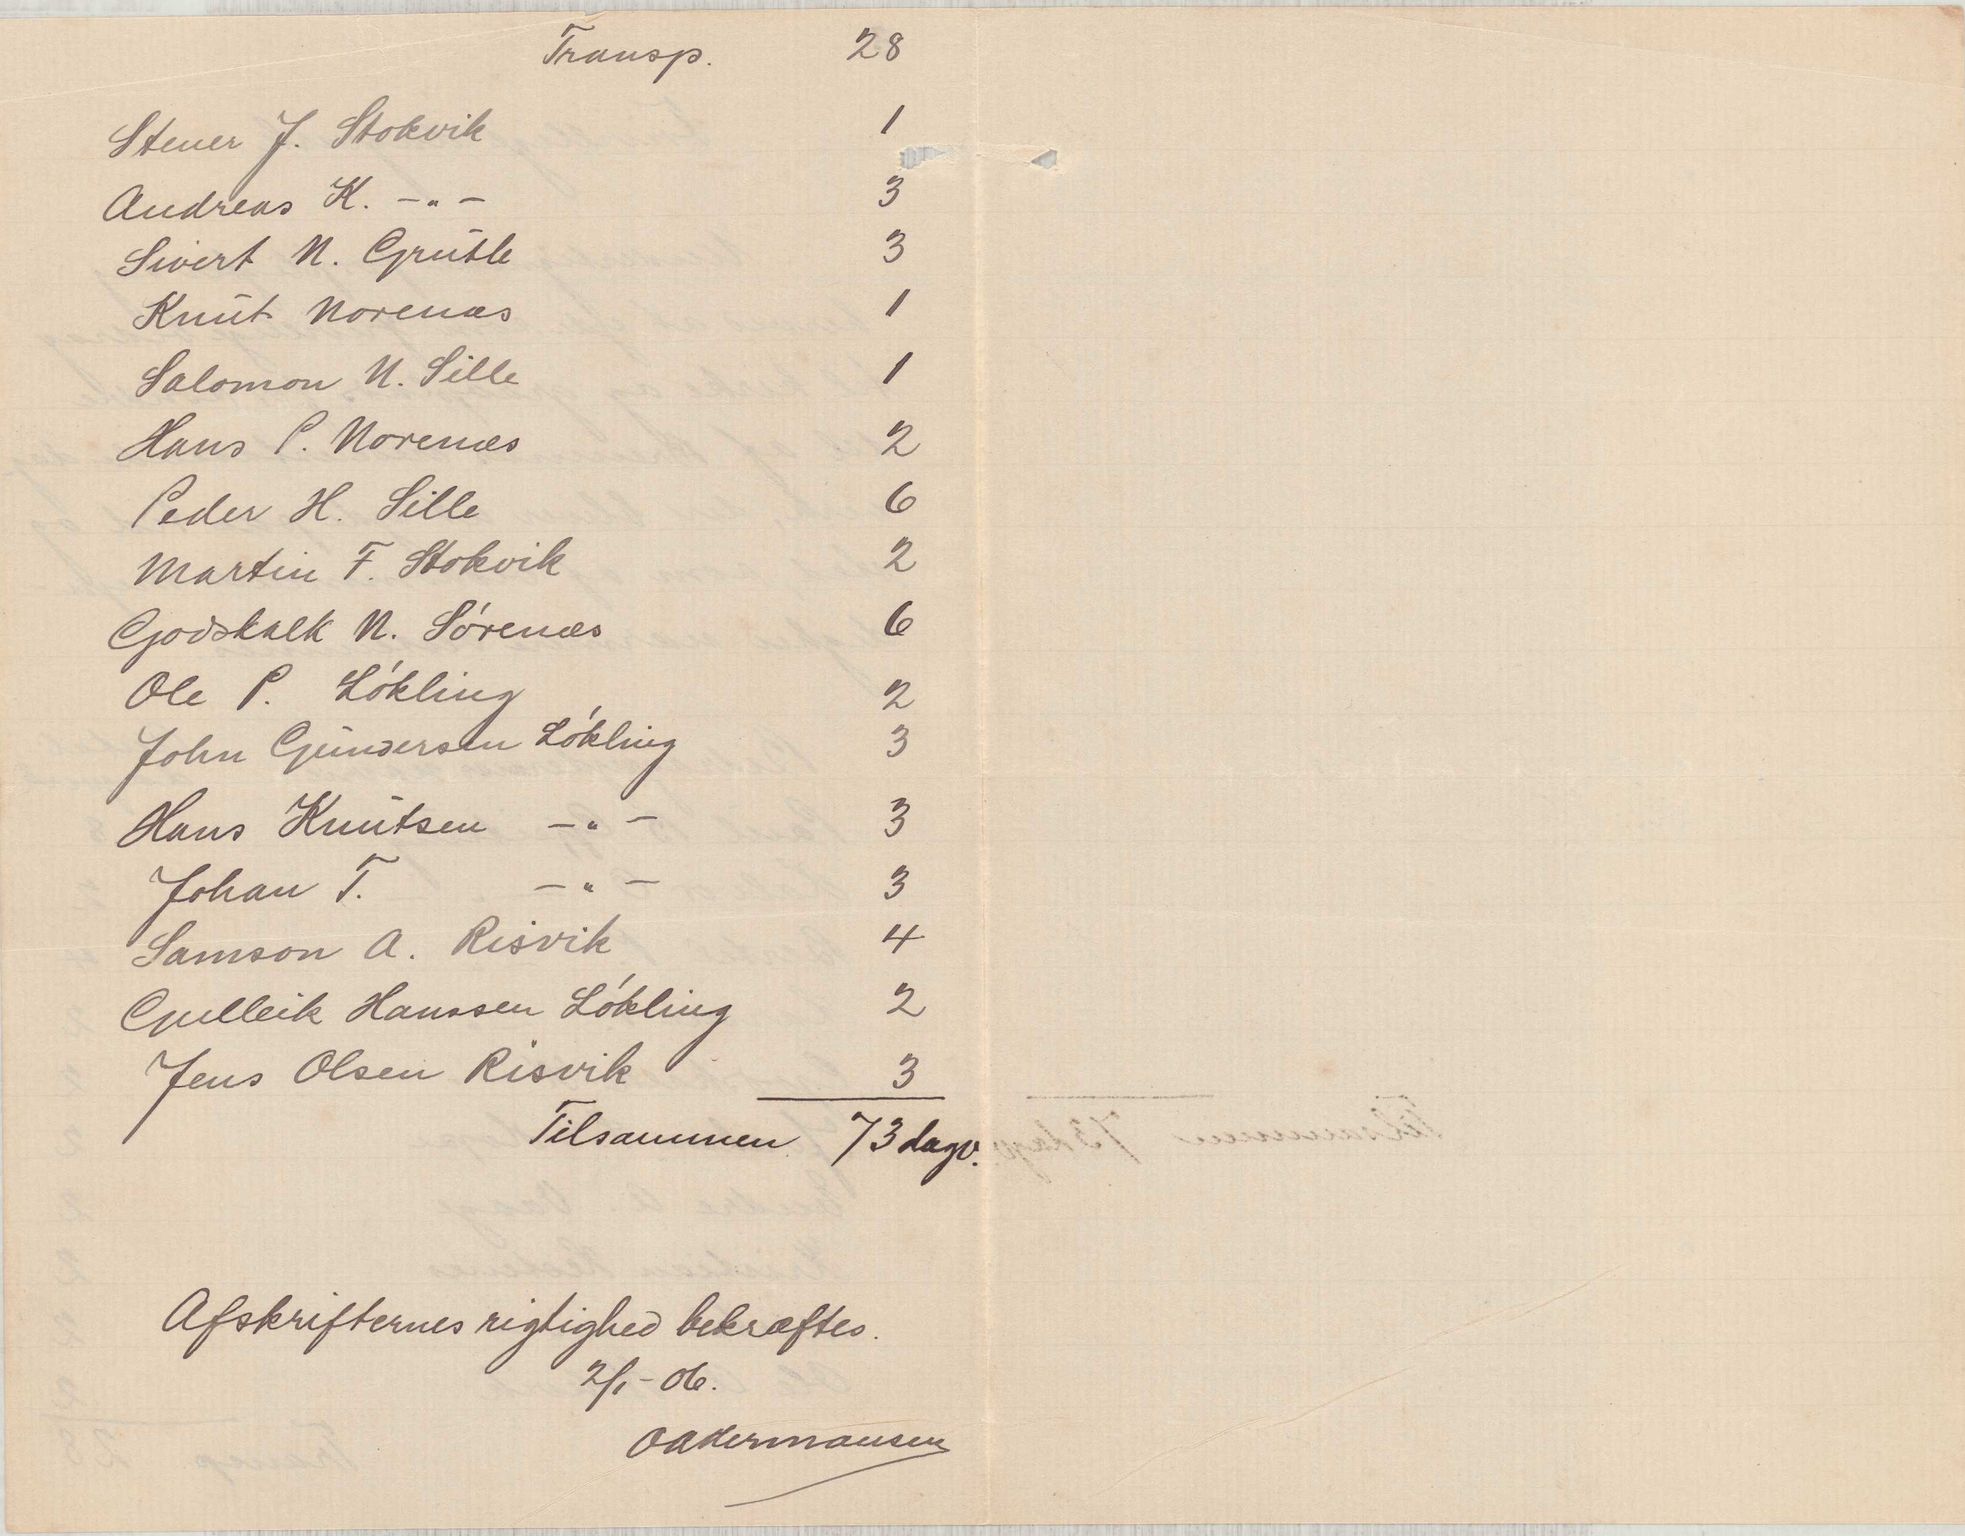 Transp. 28
Stener J. Stokvik 1
Andreas K. -"- 3
Sivert N. Grütle 3
Knüt Norenæs 1
Salomon N. Sille 1
Hans P. Norenæs 2
Peder H. Sille 6
Martin F. Stokvik 2
Godskalk N. Sórenæs 6
Ole P. Lókling 2
John Gündersen Lókling 3
Hans Knütsen -"- 3
Johan T. -"- 3
Samson A. Risvik 4
Gulleik Hanssen Lókling 2
Jens Olsen Risvik 3
Tilsammen 73 dagv.
Afskrifternes rigtighed bekræftes.
2/1-06.